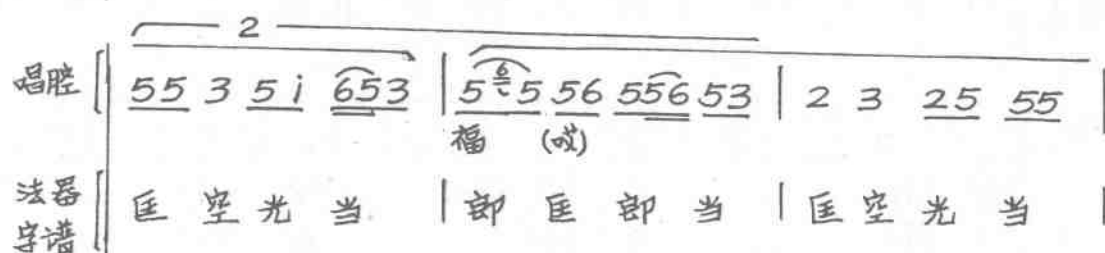 2
唱腔 55 3 5 i 653 | 5 6 5 56 556 53 | 2 3 25 55 |
福 (哎)
法器字谱 匡 空 光 当 | 郎 匡 郎 当 | 匡 空 光 当 |